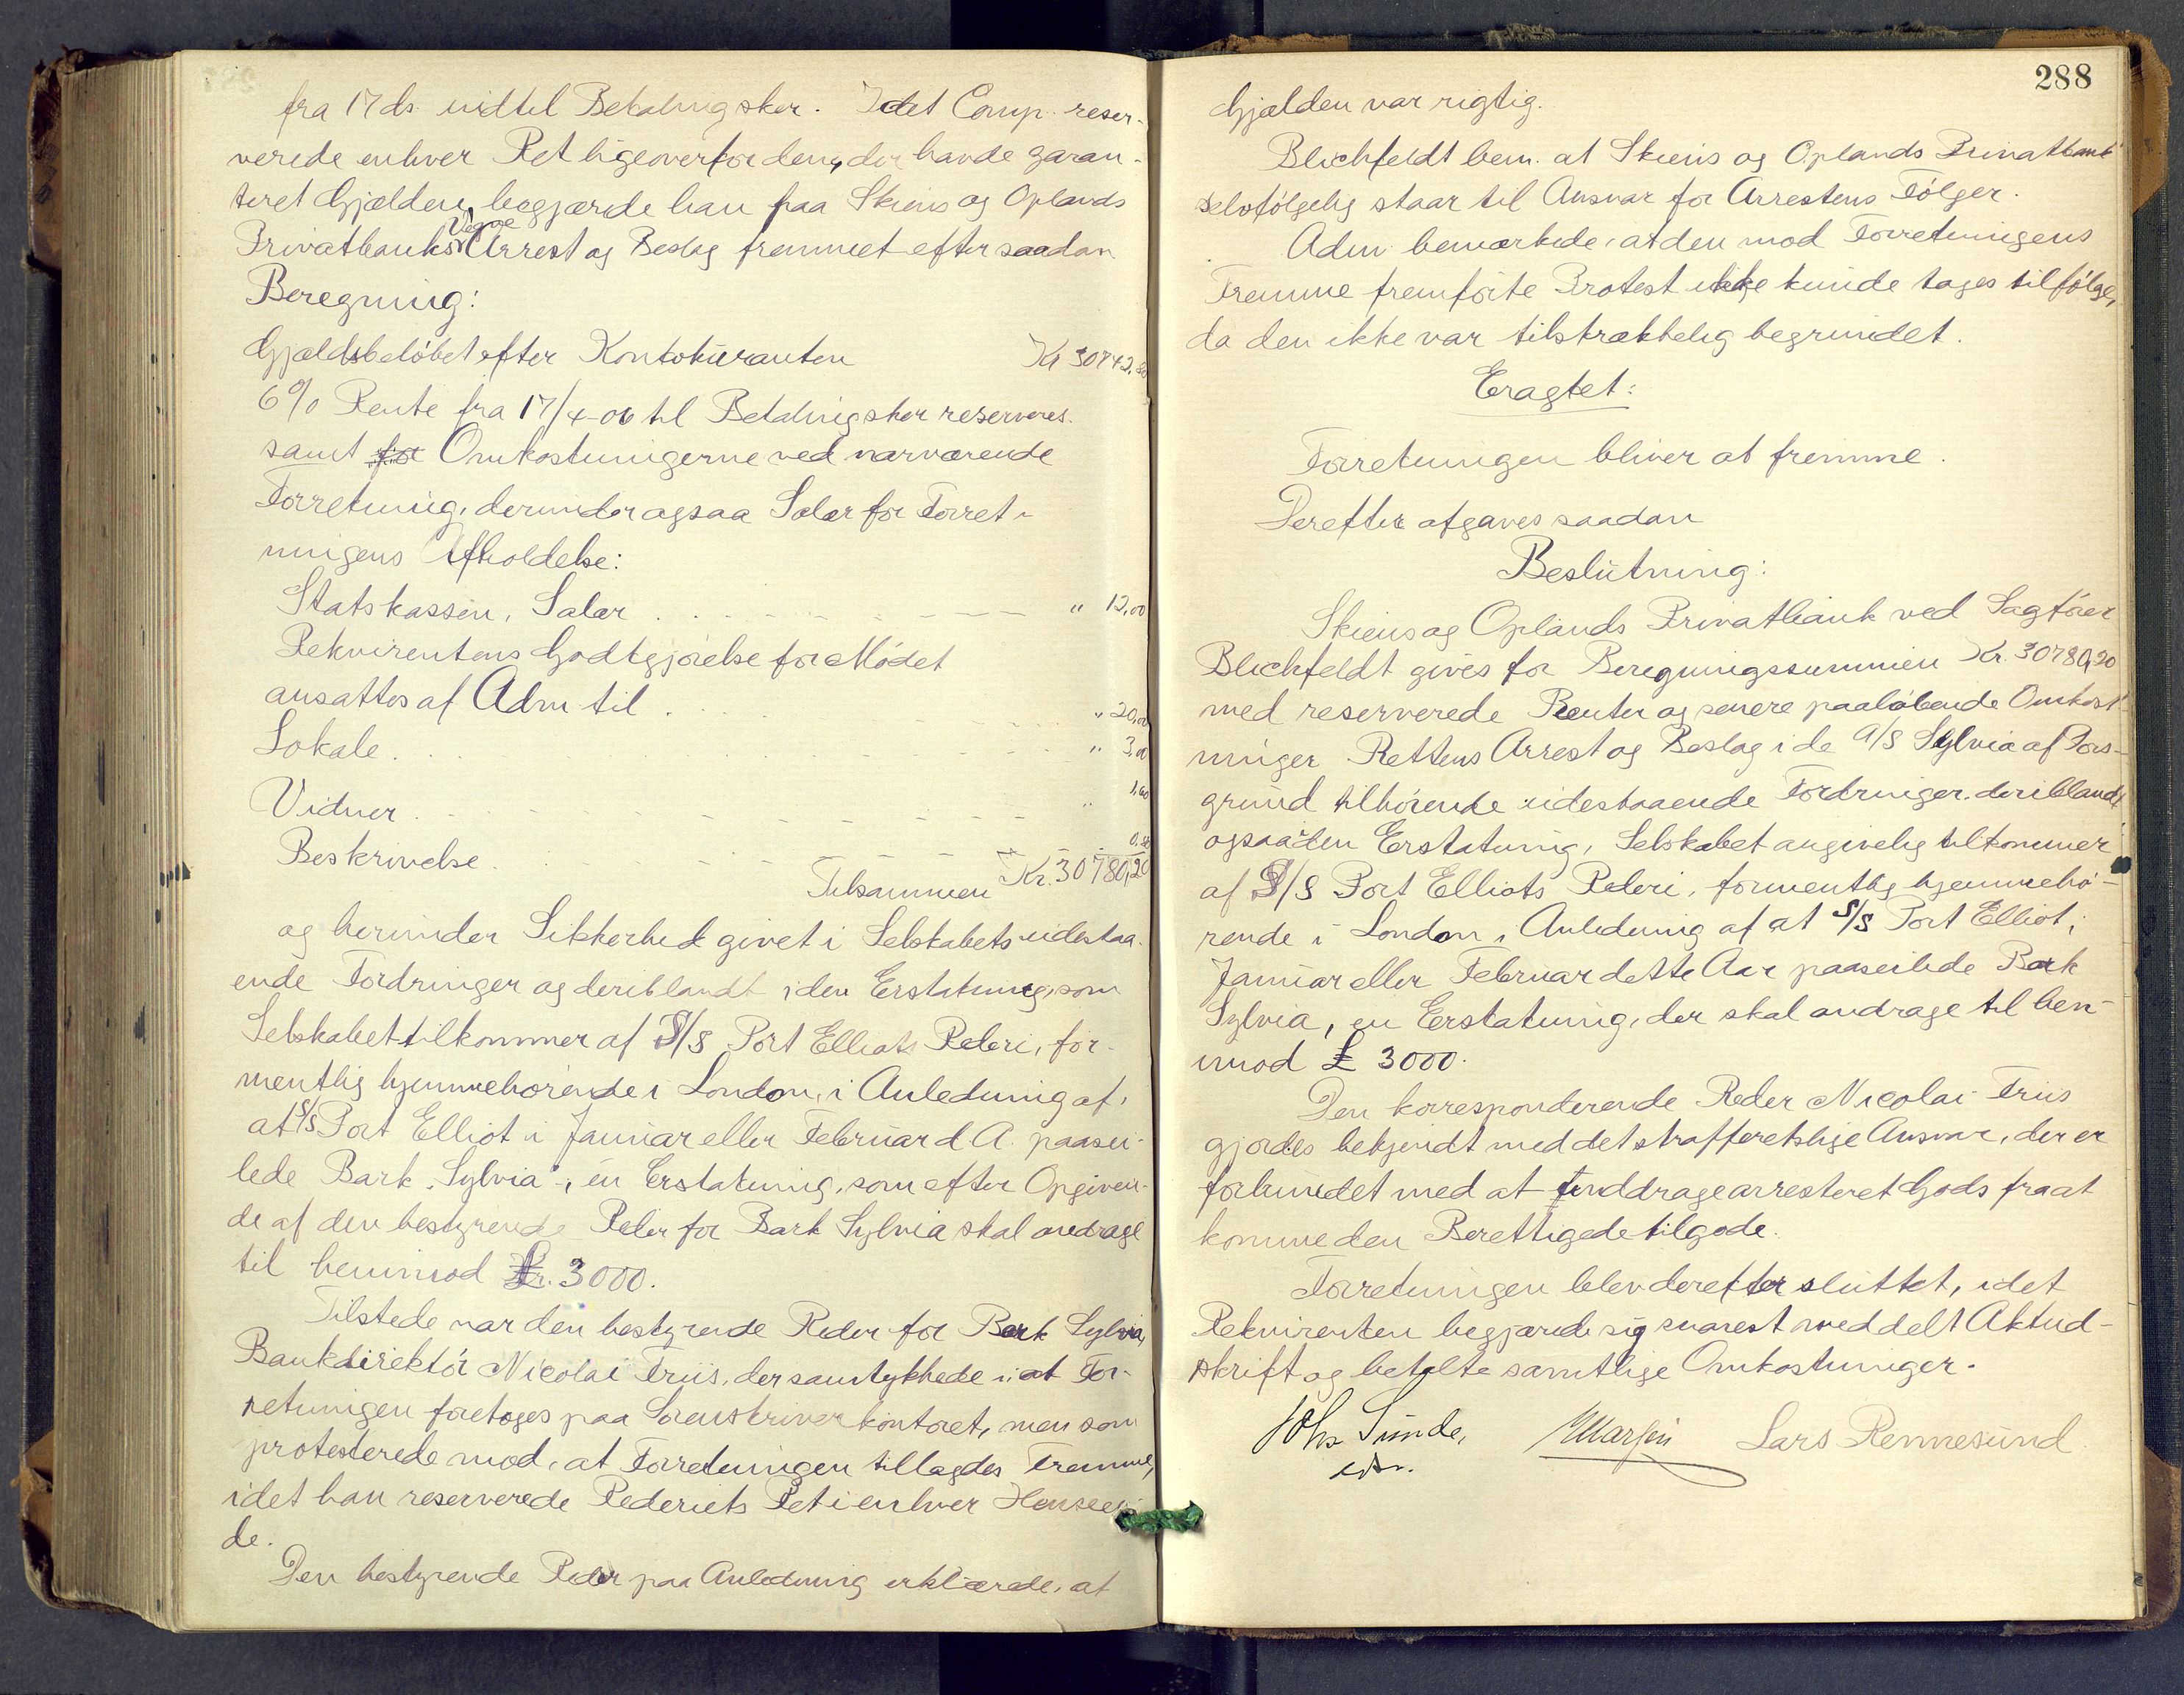 fra 17 ds. indtil Betaling sker. Idet Comp. reser-
verede enhver Ret ligeoverfor dem, der havde garan-
teret Gjælden, begjærede han paa Skiens og Oplands
Vegne
Privatbanks Arrest og Beslag fremmet efter saadan
Beregning:
Gjældsbeløbet efter Kontokuranten Kr 30742.80
6% Rente fra 17/4-06 til Betaling sker reserveres.
samt for Omkostningerne ved nærværende
Forretning, derunder ogsaa Salær for Forret-
ningens Afholdelse:
Statskassen, Salær " 12,00
Rekvirentens Godtgjørelse for Mødet
ansattes af Adm til " 20,00
Lokale " 3,00
Vidner " 1,60
Beskrivelse 0.80
Tilsammen Kr. 30780,20
og herunder Sikkerhed givet i Selskabets udestaa-
ende Fordringer og deriblandt i den Erstatning, som
Selskabet tilkommer af S/S Port Elliots Rederi, for-
mentlig hjemmehørende i London, i Anledning af,
at S/S Port Elliot i Januar eller Februar d A. paasei-
lede Bark "Sylvia", en Erstatning, som efter Opgiven-
de af den bestyrende Reder for Bark Sylvia skal andrage
til henimod £ 3000.
Tilstede var den bestyrende Reder for Bark Sylvia,
Bankdirektør Nicolai Friis, der samtykkede i at For-
retningen foretoges paa Sorenskriverkontoret, men som
protesterede mod, at Forretningen tillagdes Fremme,
idet han reserverede Rederiets Ret i enhver Henseen-
de.
Den bestyrende Reder paa Anledning erklærede, at
288
Gjælden var rigtig.
Blichfeldt bem. at Skiens og Oplands Privatbank
selvfølgelig staar til Ansvar for Arrestens Følger.
Adm bemærkede, at den mod Forretningens
Fremme fremførte Protest ikke kunde tages tilfølge,
da den ikke var tilstrækkelig begrundet.
Eragtet:
Forretningen bliver at fremme.
Derefter afgaves saadan
Beslutning:
Skiens og Oplands Privatbank ved Sagfører
Blichfeldt gives for Beregningssummen Kr. 30780,20
med reserverede Renter og senere paaløbende Omkost-
ninger Rettens Arrest og Beslag i de A/S Sylvia af Pors-
grund tilhørende udestaaende Fordringer, deriblandt
ogsaa i den Erstatning, Selskabet angivelig tilkommer
af S/S Port Elliots Rederi, formentlig hjemmehø-
rende i London, i Anledning af at S/S Port Elliot i
Januar eller Februar dette Aar paaseilede Bark
Sylvia, en Erstatning, der skal andrage til hen-
imod £ 3000.
Den korresponderende Reder Nicolai Friis
gjordes bekjendt med det strafferetslige Ansvar, der er
forbundet med at unddrage arresteret Gods fra at
komme den Berettigede tilgode.
Forretningen blev derefter sluttet, idet
Rekvirenten begjærede sig snarest meddelt Aktud-
skrift og betalte samtlige Omkostninger.
Johs Sunde, Lars Rennesund